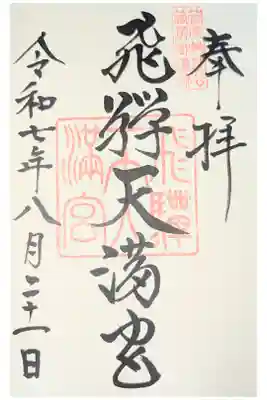 奉拝
飛騨天満宮
飛騨天満宮
令和七年八月二十一日